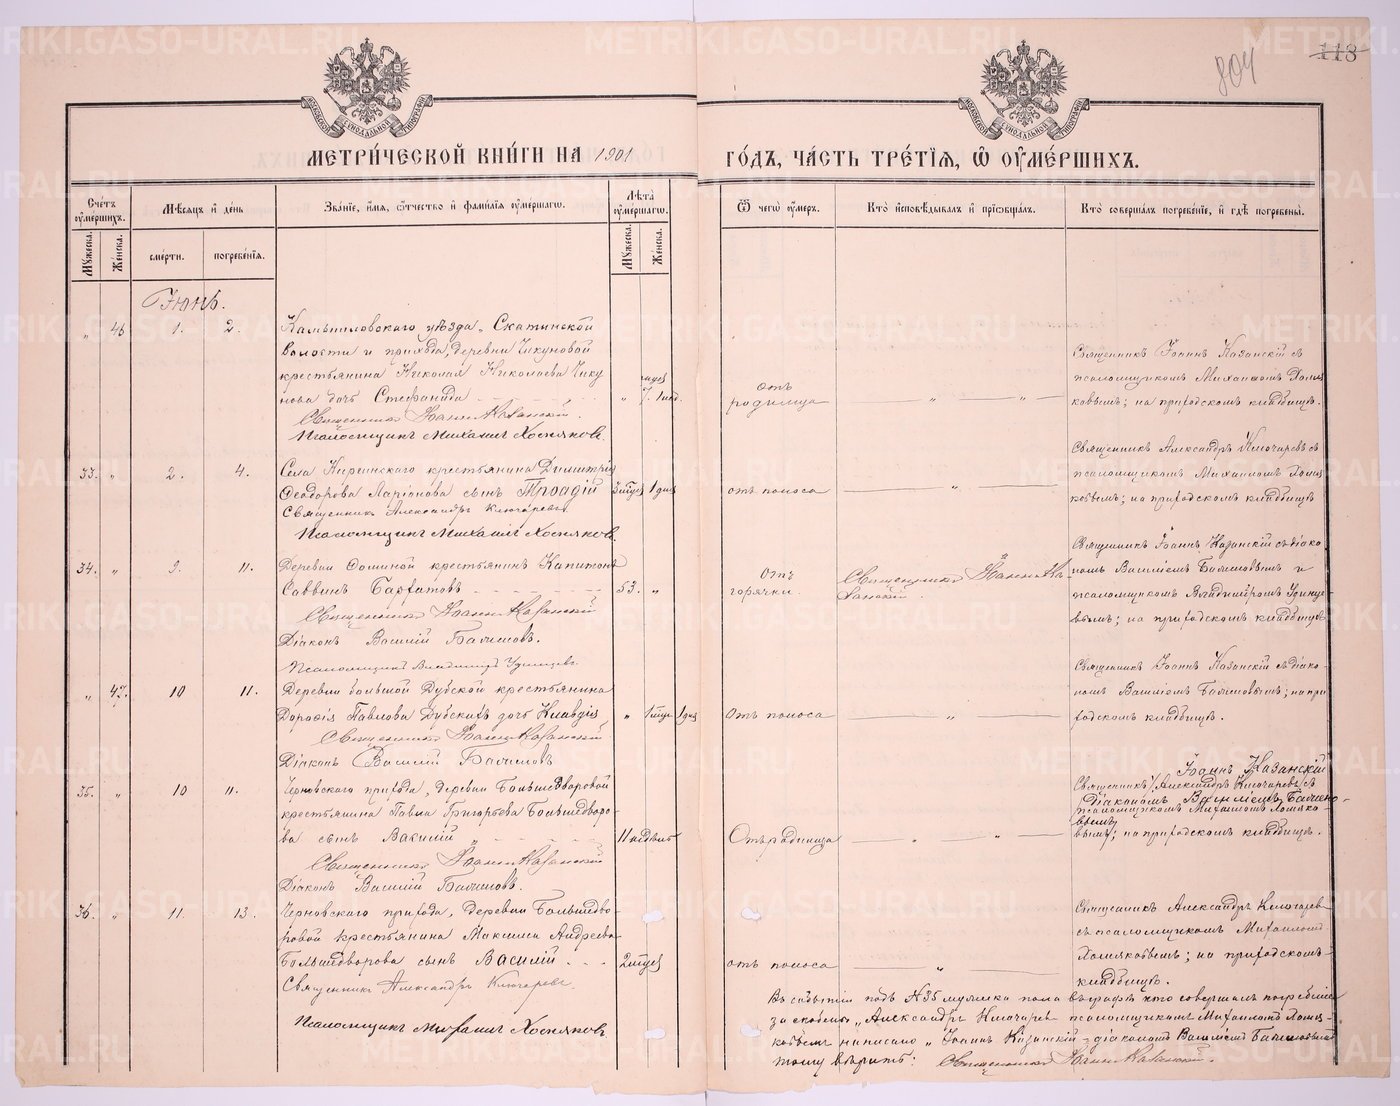 804
118
МЕТРИ́ЧЕСКОЙ КНИ́ГИ НА 1901
ГО́ДЪ, ЧА́СТЬ ТРЕ́ТІѦ, Ѡ҆ ОУ҆МЕ́РШИХЪ.
Сче́тъ оу҆ме́ршихъ.
Мѣ́сѧцъ и҆ де́нь
Зва́нїе, и҆́мѧ, ѻ҆́тчество и҆ фамі́лїѧ оу҆ме́ршагѡ.
Лѣ́та оу҆ме́ршагѡ.
Ѿ чегѡ̀ оу҆́меръ.
Кто̀ и҆сповѣ́дывалъ и҆ прїѡбща́лъ.
Кто̀ соверша́лъ погребе́нїе, и҆ гдѣ̀ погребены̀.
Мꙋ́жеска. Же́нска. сме́рти. погребе́нїѧ. Мꙋ́жеска. Же́нска.
Іюнь.
„ 46 1. 2. Камышловскаго уѣзда, Скатинской
волости и прихода, деревни Чикуновой
крестьянина Николая Николаева Чику
нова дочь Стефанида
Священникъ Іоаннъ Казанскій.
Псаломщикъ Михаилъ Хомяковъ.
отъ родимца
Священникъ Іоаннъ Казанскій съ
псаломщикомъ Михаиломъ Хомя
ковымъ; на приходскомъ кладбищѣ.
33. „ 2. 4. Села крестьянина Димитрія
Ѳеодорова Ларіонова сынъ Троадій
Священникъ Александръ Ключаревъ
Псаломщикъ Михаилъ Хомяковъ.
1 дня
отъ поноса
Священникъ Александръ Ключаревъ съ
псаломщикомъ Михаиломъ Хомя
ковымъ; на приходскомъ кладбищѣ
34. „ 9. 11. Деревни крестьянинъ Капитонъ
Саввинъ
53. „
Священникъ Іоаннъ Казанскій
Діаконъ Василій
Псаломщикъ Владиміръ
Отъ горячки.
Священникъ Іоаннъ Ка
занскій.
Священникъ Іоаннъ Казанскій съ діако
номъ Василіемъ и
псаломщикомъ Владиміромъ
на приходскомъ кладбищѣ
„ 47. 10 11. Деревни большой Дубской крестьянина
Дороѳія Павлова Дубскихъ дочь Клавдія
Священникъ Іоаннъ Казанскій
Діаконъ Василій
1 дня
Отъ поноса
Священникъ Іоаннъ Казанскій съ діако-
номъ Василіемъ; на при
ходскомъ кладбищѣ.
35. „ 10 11. Черновского прихода, деревни Большедворовой
крестьянина Павла Григорьева Большедворо
ва сынъ Василій
Священникъ Іоаннъ Казанскій
Діаконъ Василій
11 недѣль
Отъ родимца
Іоаннъ Казанскій
Священникъ Александръ Ключаревъ съ
Діакономъ Василіемъ
псаломщикомъ Михаиломъ Хомяко-
вымъ; на приходскомъ кладбищѣ.
36. „ 11. 13. Черновского прихода, деревни Большедво-
ровой крестьянина Максима Андреева
Большедворова сынъ Василій
Священникъ Александръ Ключаревъ.
Псаломщикъ Михаилъ Хомяковъ
отъ поноса
Священникъ Александръ Ключаревъ
съ псаломщикомъ Михаиломъ
Хомяковымъ; на приходскомъ
кладбищѣ.
Въ событіи подъ №35 мужска пола въ графѣ кто совершалъ погребеніе
за скобки „Александръ Ключаревъ псаломщикомъ Михаиломъ Хомя
ковымъ написано „Іоаннъ Казанскій діакономъ Василіемъ
тому вѣрить: Священникъ Іоаннъ Казанскій.
METRIKI.GASO-URAL.RU